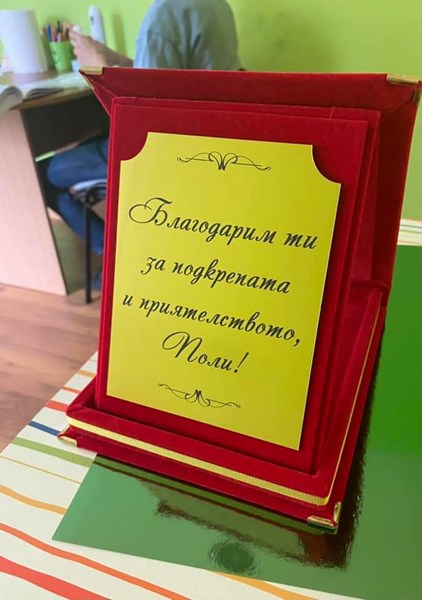 Благодарим ти
за подкрепата
и приятелството,
Поли!